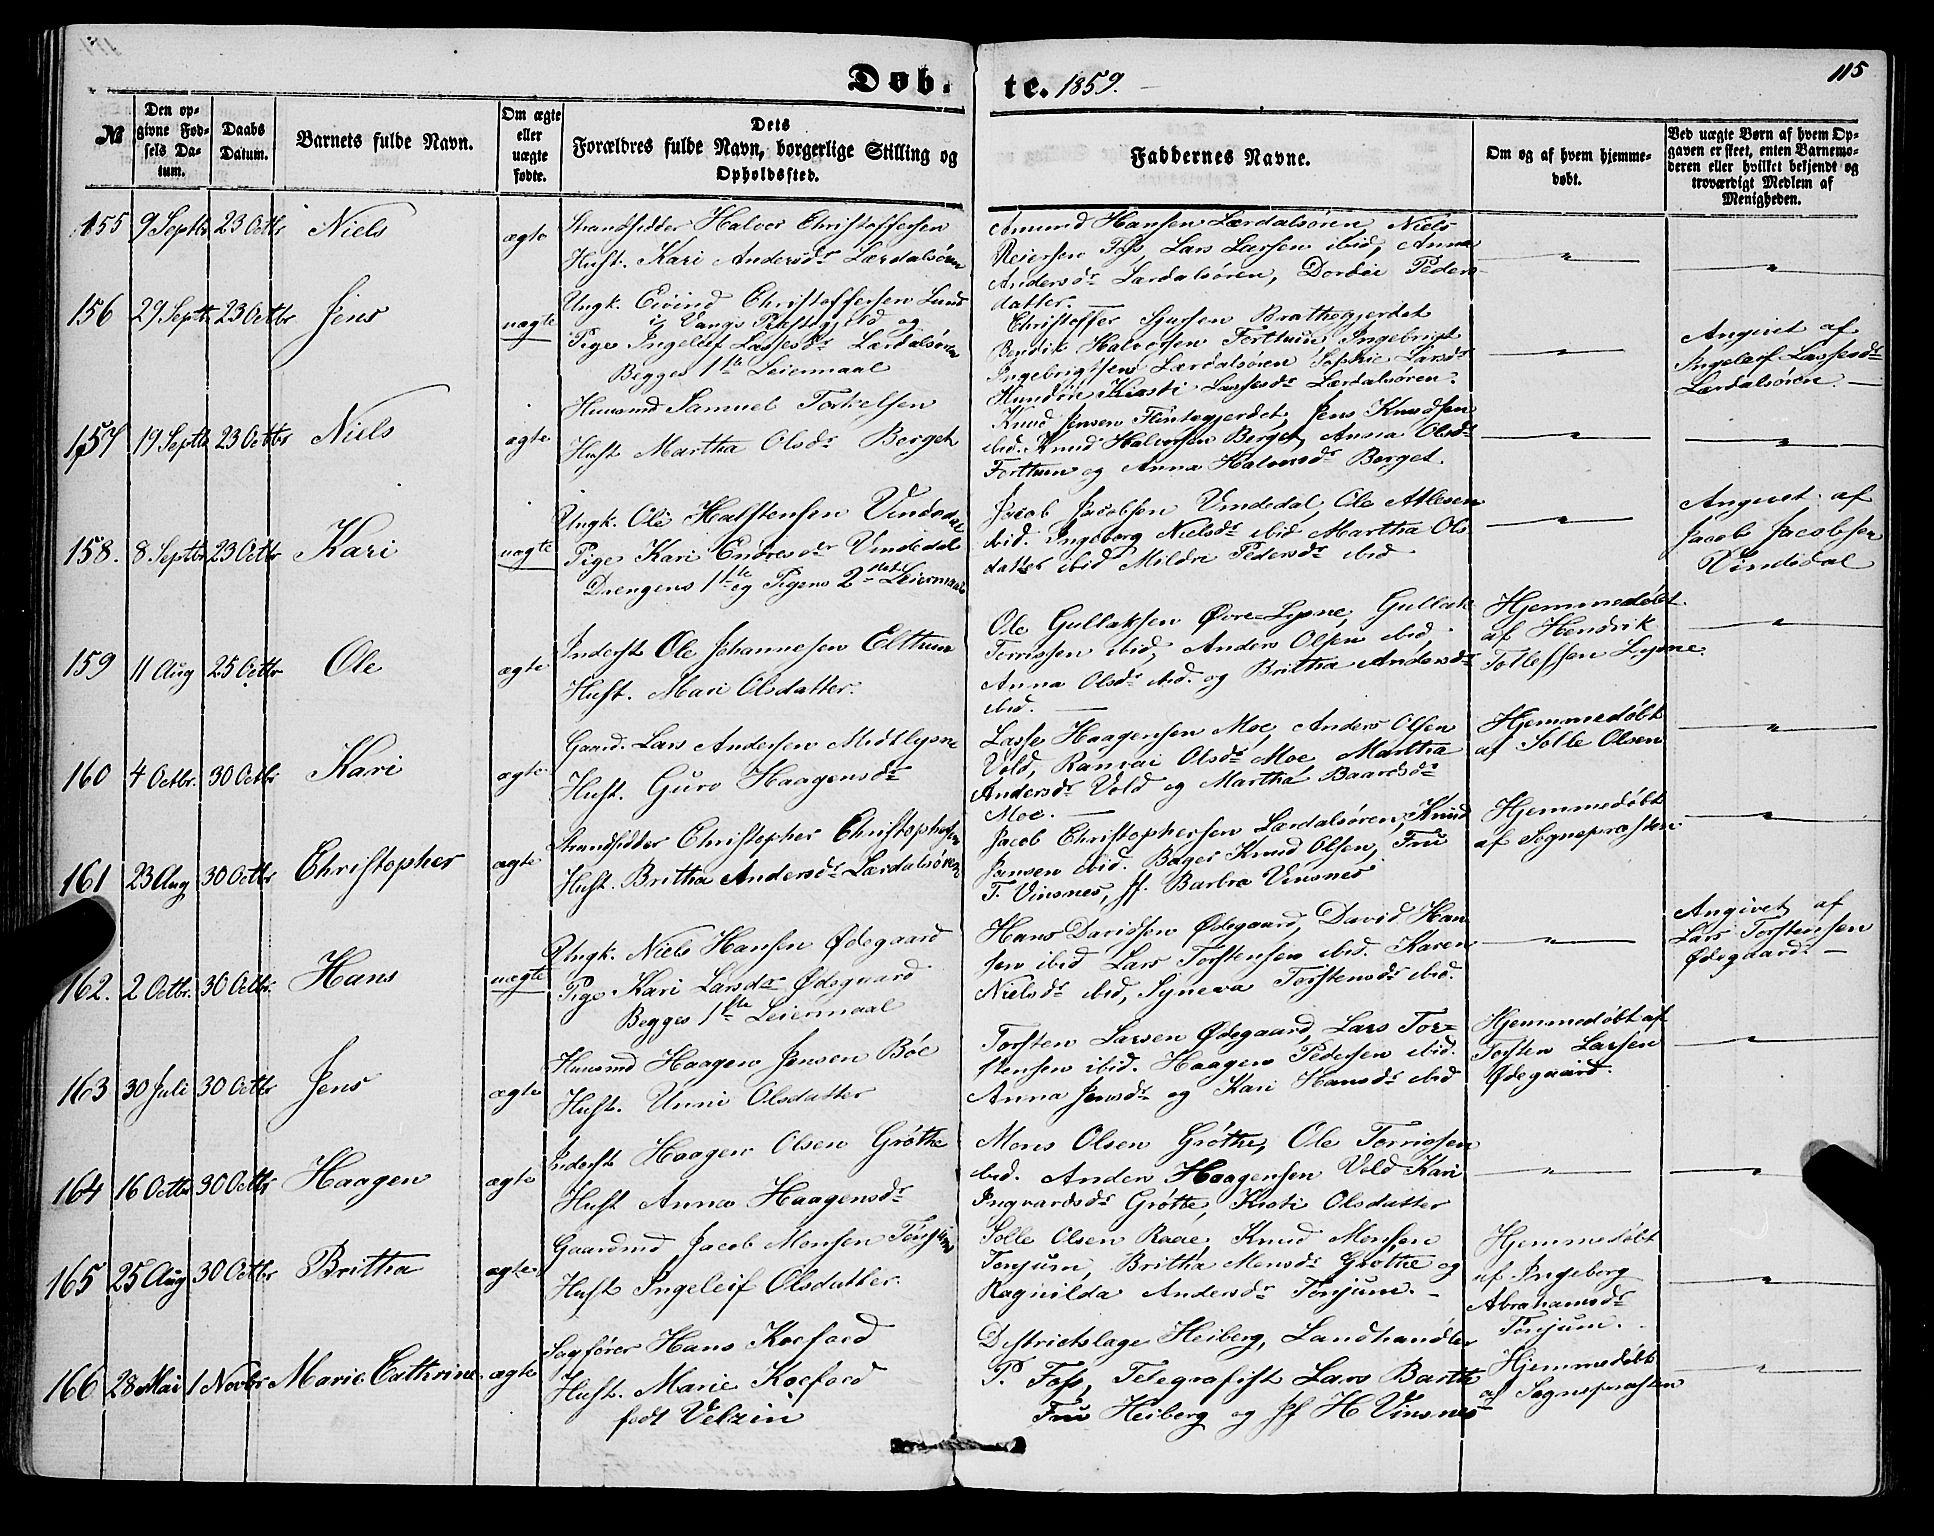 115
Døb- te. 1859.
№ | Den opgivne Fødsels Datum. | Daabs Datum. | Barnets fulde Navn. | Om ægte eller uægte fødte. | Dets Forældres fulde Navn, borgerlige Stilling og Opholdssted. | Faddernes Navne. | Om og af hvem hjemmedøbt. | Ved uægte Børn af hvem Opgaven er skeet, enten Barnemoderen eller hvilket bekjendt og troværdigt Medlem af Menigheden.
155 9 Septbr 23 Octbr Niels ægte
Strandsidder Halvor Christoffersen
Hust. Kari Andersdr Lærdalsøren
Amund Hansen Lærdalsøren, Niels
Reiersen Føs, Lars Larsen ibid, Anna
Andersdr Lærdalsøren, Dordie Peders-
datter.
156 29 Septbr 23 Octbr Jens uægte
Ungk. Eivind Christoffersen Lund
i Vangs Præstegjeld og
Pige Ingeleif Lassesdr Lærdalsøren
Begges 1ste Leiermaal
Christoffer Sjursen Brattegjerdet
Bendik Halvorsen Forthun, Ingebrigt
Ingebrigtsen Lærdalsøren Sophie Larsdr
Hundøri Kirsti Lassesdr Lærdalsøren.
Angivet af
Ingeleif Lassesdr
Lærdalsøren.
157 19 Septbr 23 Octbr Niels ægte
Huusmd Samuel Torkelsen
Hust. Martha Olsdr Berget
Knud Jensen Flintegjerdet, Jens Knudsen
ibid. Knud Halvorsen Berget, Anna Olsdr
Forthun og Anna Halvorsdr Berget.
158. 8 Septbr 23 Octbr Kari uægte
Ungk. Ole Halstensen Vindedal
Pige Kari Endresdr Vindedal
Drengens 1ste og Pigens 2det Leiermaal
Jacob Jacobsen Vindedal, Ole Atlesen
ibid. Ingeborg Nielsdr ibid Martha Ols
datter ibid Mildri Pedersdr ibid
Angivet af
Jacob Jacobsen
Vindedal
159 11 Aug 25 Octbr Ole ægte
Inderst Ole Johannesen Elthun
Hust. Mari Olsdatter.
Ole Gullaksen Øvre Lysne, Gullak
Torrissen ibid, Anders Olsen ibid,
Anna Olsdr ibid. og Britha Andersdr
ibid.
Hjemmedøbt
af Hendrik
Tollefsen Lysne.
160 4 Octbr. 30 Octbr Kari ægte
Gaardm. Lars Andersen Midtlysne
Hust. Guro Haagensdr
Lasse Haagensen Moe, Anders Olsen
Vold, Ranvei Olsdr Moe, Martha
Andersdr Vold og Martha Baardsdr
Moe.
Hjemmedøbt
af Solle Olsen
161 23 Aug 30 Octbr Christopher ægte
Strandsidder Christopher Christophersen
Hust. Britha Andersdr Lærdalsøren
Jacob Christophersen Lærdalsøren, Knud
Jansen ibid. Bager Knud Olsen, Fru
T. Vinsnes, Jf. Barbra Vinsnes
Hjemmedøbt
af Sognepræsten
162. 2 Octbr. 30 Octbr. Hans uægte
Ungk. Niels Hansen Ødegaard
Pige Kari Larsdr Ødegaard
Begges 1ste Leiermaal
Hans Davidsen Ødegaard, David Han
sen ibid Lars Torstensen ibid. Karen
Nielsdr ibid, Syneva Torstensdr ibid.
Angivet af
Lars Torstensen
Ødegaard.
163 30 Juli 30 Octbr Jens ægte
Huusmd Haagen Jensen Böe
Hust. Unni Olsdatter
Torsten Larsen Ødegaard, Lars Tor-
stensen ibid. Haagen Pedersen ibid.
Anna Jensdr og Kari Hansdr ibid
Hjemmedøbt af
Torsten Larsen
Ødegaard.
164 16 Octbr 30 Octbr Haagen ægte
Inderst Haagen Olsen Grøthe
Hust Anna Haagensdr
Mons Olsen Grøthe, Ole Torrissen
ibid. Anders Haagensen Vold Kari
Ingvardsdr Grøtte, Kisti Olsdatter
165 25 Aug 30 Octbr Britha ægte
Gaardmd Jacob Monsen Tønjum
Hust Ingeleif Olsdatter
Solle Olsen Raae, Knud Monsen
Tonjum, Britha Monsdr Grøthe og
Ragnilda Andersdr Tonjum.
Hjemmedøbt
af Ingeborg
Abrahamsdr
Tonjum.
166 28 Mai 1 Novbr Marie Cathrine ægte
Sagfører Hans Koefoed
Hust. Marie Koefoed
født Velzin
Destrictslæge Heiberg, Landhandler
P. Føs, Telegrafist Lars Barth
Fru Heiberg og Jf H Vinsnes
Hjemmedøbt
af Sognepræsten